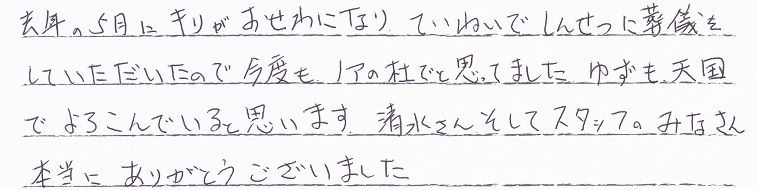 去年の5月に キリが おせわになり ていねいで しんせつに葬儀を
していただいたので 今度も ノアの杜でと思ってました ゆずも 天国
で よろこんでいると思います 清水さん そして スタッフの みなさん
本当に ありがとうございました